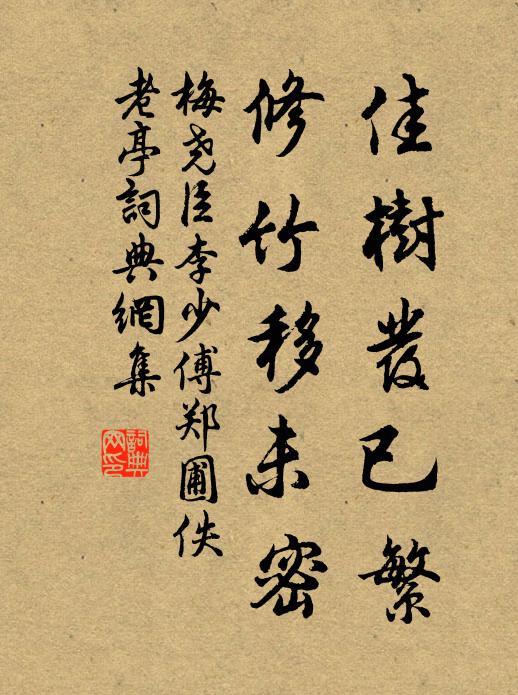 佳樹發已繁
修竹移未密
梅堯臣李少傅郑圃佚
老亭詞典網集
詞典網印